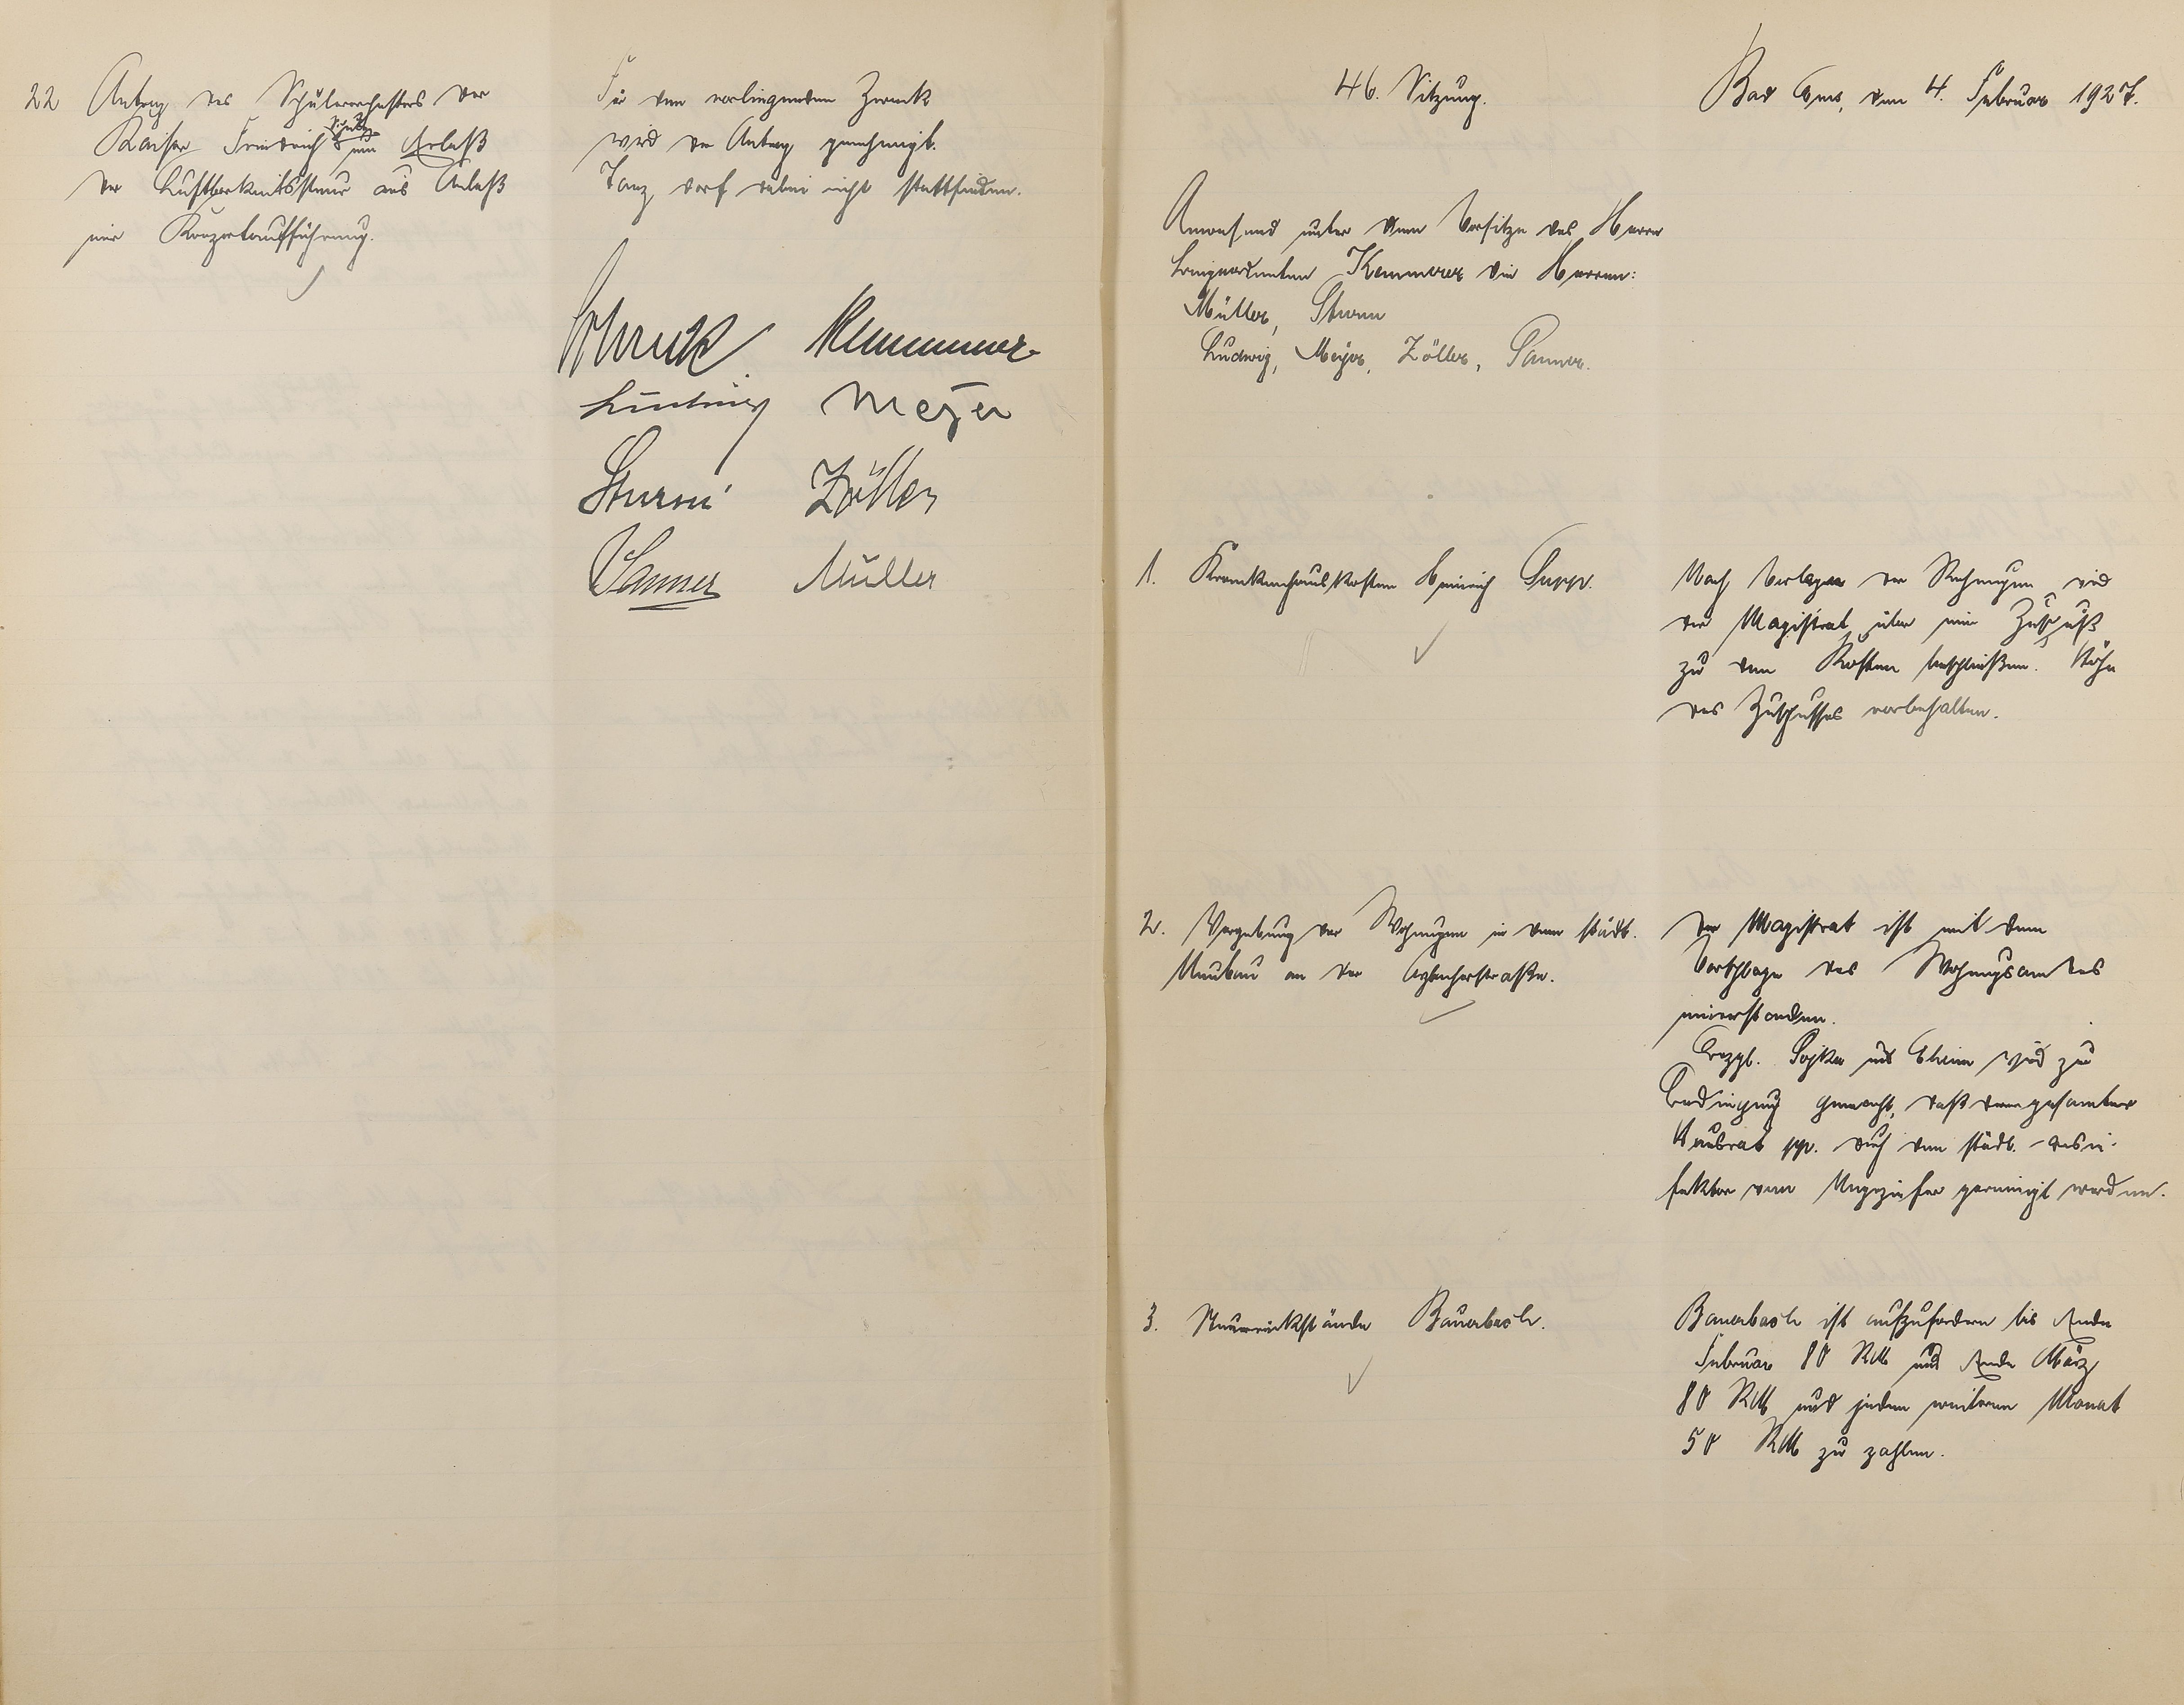 22 Antrag des Schülerorchesters der
Kaiser Friedrich Schule um Erlaß
der Lustbarkeitssteuer aus Anlaß
einer Konzertaufführung.
Für den vorliegenden Zweck
wird der Antrag genehmigt.
Tanz darf dabei nicht stattfinden.
Schreck Kemmerer
Ludwig Meyer
Sturm Zöller
Sanner Müller
46. Sitzung.
Bad Ems, den 4. Februar 1927.
Anwesend unter dem Vorsitze des Herrn
Beigeordneten Kemmerer die Herren:
Müller, Sturm
Ludwig, Meyer, Zöller, Sanner.
1. Krankenhauskosten Heinrich Supp.
Nach Vorlagen der Rechnungen wird
der Magistrat über einen Zuschuß
zu den Kosten beschließen. Höhe
des Zuschusses vorbehalten.
2. Vergebung der Wohnungen in dem städt.
Neubau an der Arzbacherstraße.
Der Magistrat ist mit dem
Vorschlage des Wohnungsamtes
einverstanden.
Bezgl. Sojka und Rheim wird zur
Bedingung gemacht, daß der gesamte
Hausrat pp. durch den städt. Desin-
fektor vom Ungeziefer gereinigt werden.
3. Steuerrückstände Bauerbach.
Bauerbach ist aufzufordern bis Ende
Februar 80 RM und Ende März
80 RM und jeden weiteren Monat
50 RM zu zahlen.